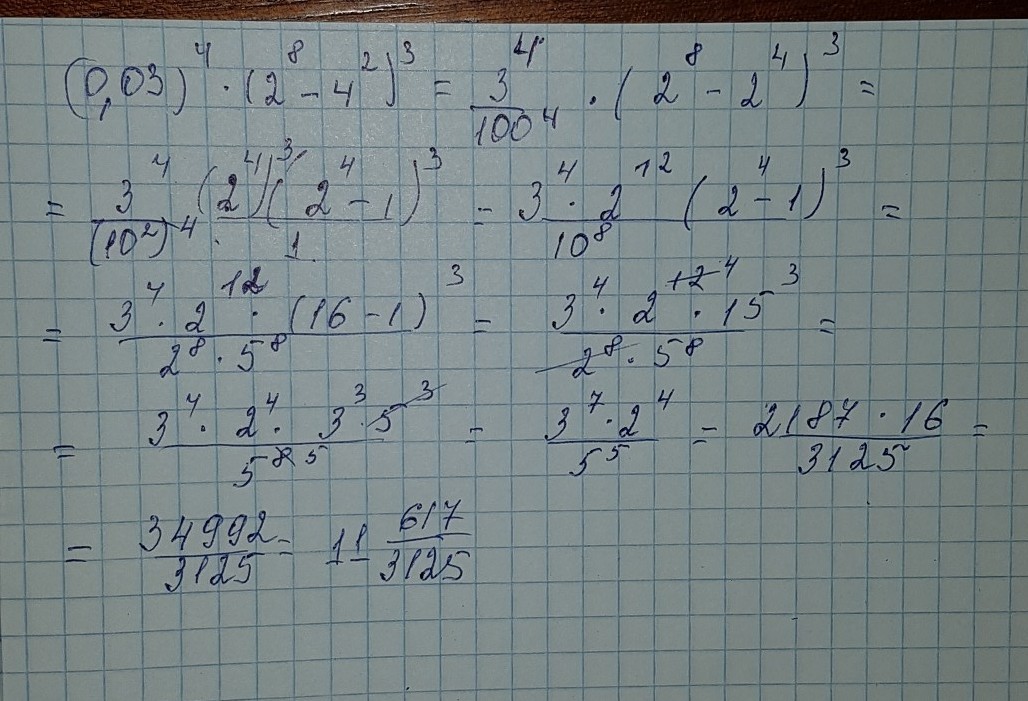 (0,03)⁴ · (2⁸ - 4²)³ = 3⁴/100⁴ · (2⁸ - 2⁴)³ =
= 3⁴/(10²)⁴ · (2⁴)³(2⁴ - 1)³/1 = 3⁴ · 2¹²/10⁸ (2⁴ - 1)³ =
= 3⁴ · 2¹² · (16 - 1)³/2⁸ · 5⁸ = 3⁴ · 2¹² ⁴ · 15³/2⁸ · 5⁸ =
= 3⁴ · 2⁴ · 3³ · 5³/5⁸ ⁵ = 3⁷ · 2⁴/5⁵ = 2187 · 16/3125 =
= 34992/3125 = 11 617/3125